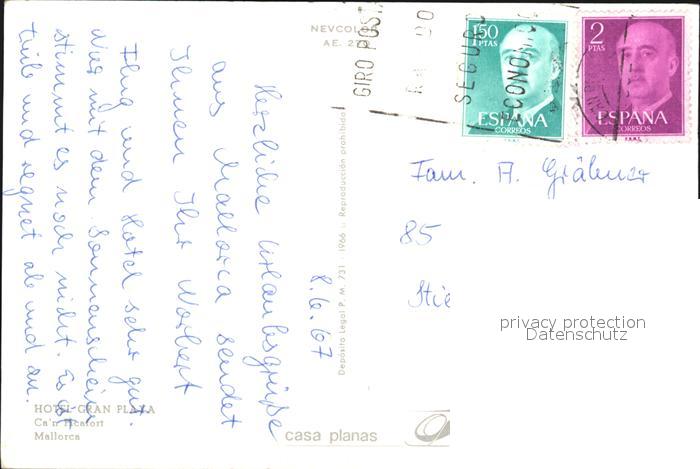 NEVCOLOR
AE. 2
GIRO POST
SEGUR
ECONOMIC
1'50
PTAS
ESPAÑA
CORREOS
F.N.M.T.
2
PTAS
ESPAÑA
CORREOS
F.N.M.T.
8.6.67
Herzliche Urlaubsgrüße
aus Mallorca sendet
Ihnen Ihr Norbert
Flug und Hotel sehr gut.
Nur mit dem Sonnenschein
stimmt es noch nicht. Es ist
trüb und regnet ab und an.
Depósito Legal P. M. 731 - 1966 - Reproducción prohibida
Fam. A. Gräbner
85
Stie
privacy protection
Datenschutz
HOTEL GRAN PLAYA
Ca'n Picafort
Mallorca
casa planas